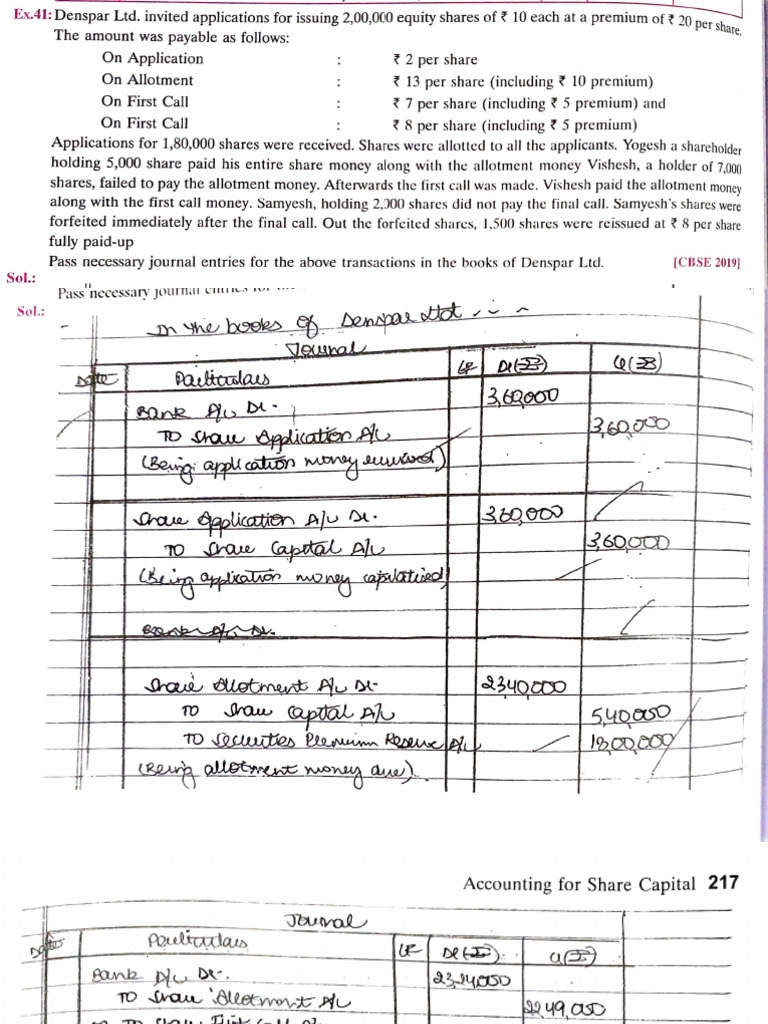 Ex.41: Denspar Ltd. invited applications for issuing 2,00,000 equity shares of ₹ 10 each at a premium of ₹ 20 per share.
The amount was payable as follows:
On Application : ₹ 2 per share
On Allotment : ₹ 13 per share (including ₹ 10 premium)
On First Call : ₹ 7 per share (including ₹ 5 premium) and
On First Call : ₹ 8 per share (including ₹ 5 premium)
Applications for 1,80,000 shares were received. Shares were allotted to all the applicants. Yogesh a shareholder
holding 5,000 share paid his entire share money along with the allotment money Vishesh, a holder of 7,000
shares, failed to pay the allotment money. Afterwards the first call was made. Vishesh paid the allotment money
along with the first call money. Samyesh, holding 2,000 shares did not pay the final call. Samyesh's shares were
forfeited immediately after the final call. Out the forfeited shares, 1,500 shares were reissued at ₹ 8 per share
fully paid-up
Pass necessary journal entries for the above transactions in the books of Denspar Ltd. [CBSE 2019]
Sol.:
Pass necessary journal
Sol.:
In the books of Denspar Ltd.
Journal
Date Particulars LF Dr (₹) Cr (₹)
Bank A/c Dr. 3,60,000
To Share Application A/c 3,60,000
(Being application money received)
Share Application A/c Dr. 3,60,000
To Share Capital A/c 3,60,000
(Being application money capitalised)
Bank A/c Dr.
Share Allotment A/c Dr. 2340,000
To Share Capital A/c 5,40,000
To Securities Premium Reserve A/c 1800,000
(Being allotment money due)
Accounting for Share Capital 217
Journal
Date Particulars LF Dr (₹) Cr (₹)
Bank A/c Dr.
To Share Allotment A/c 2249,000